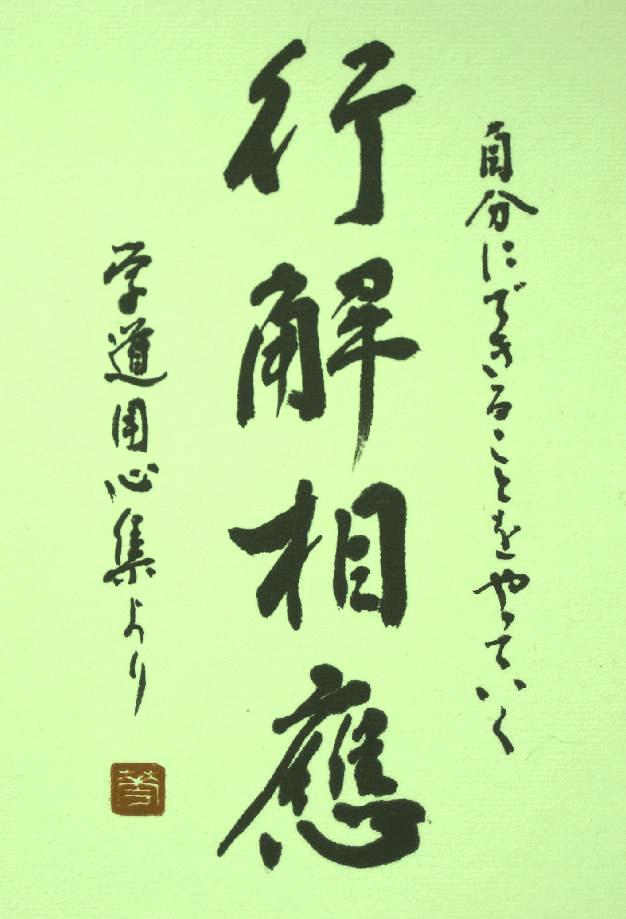 自分にできることをやっていく
行解相應
学道用心集より